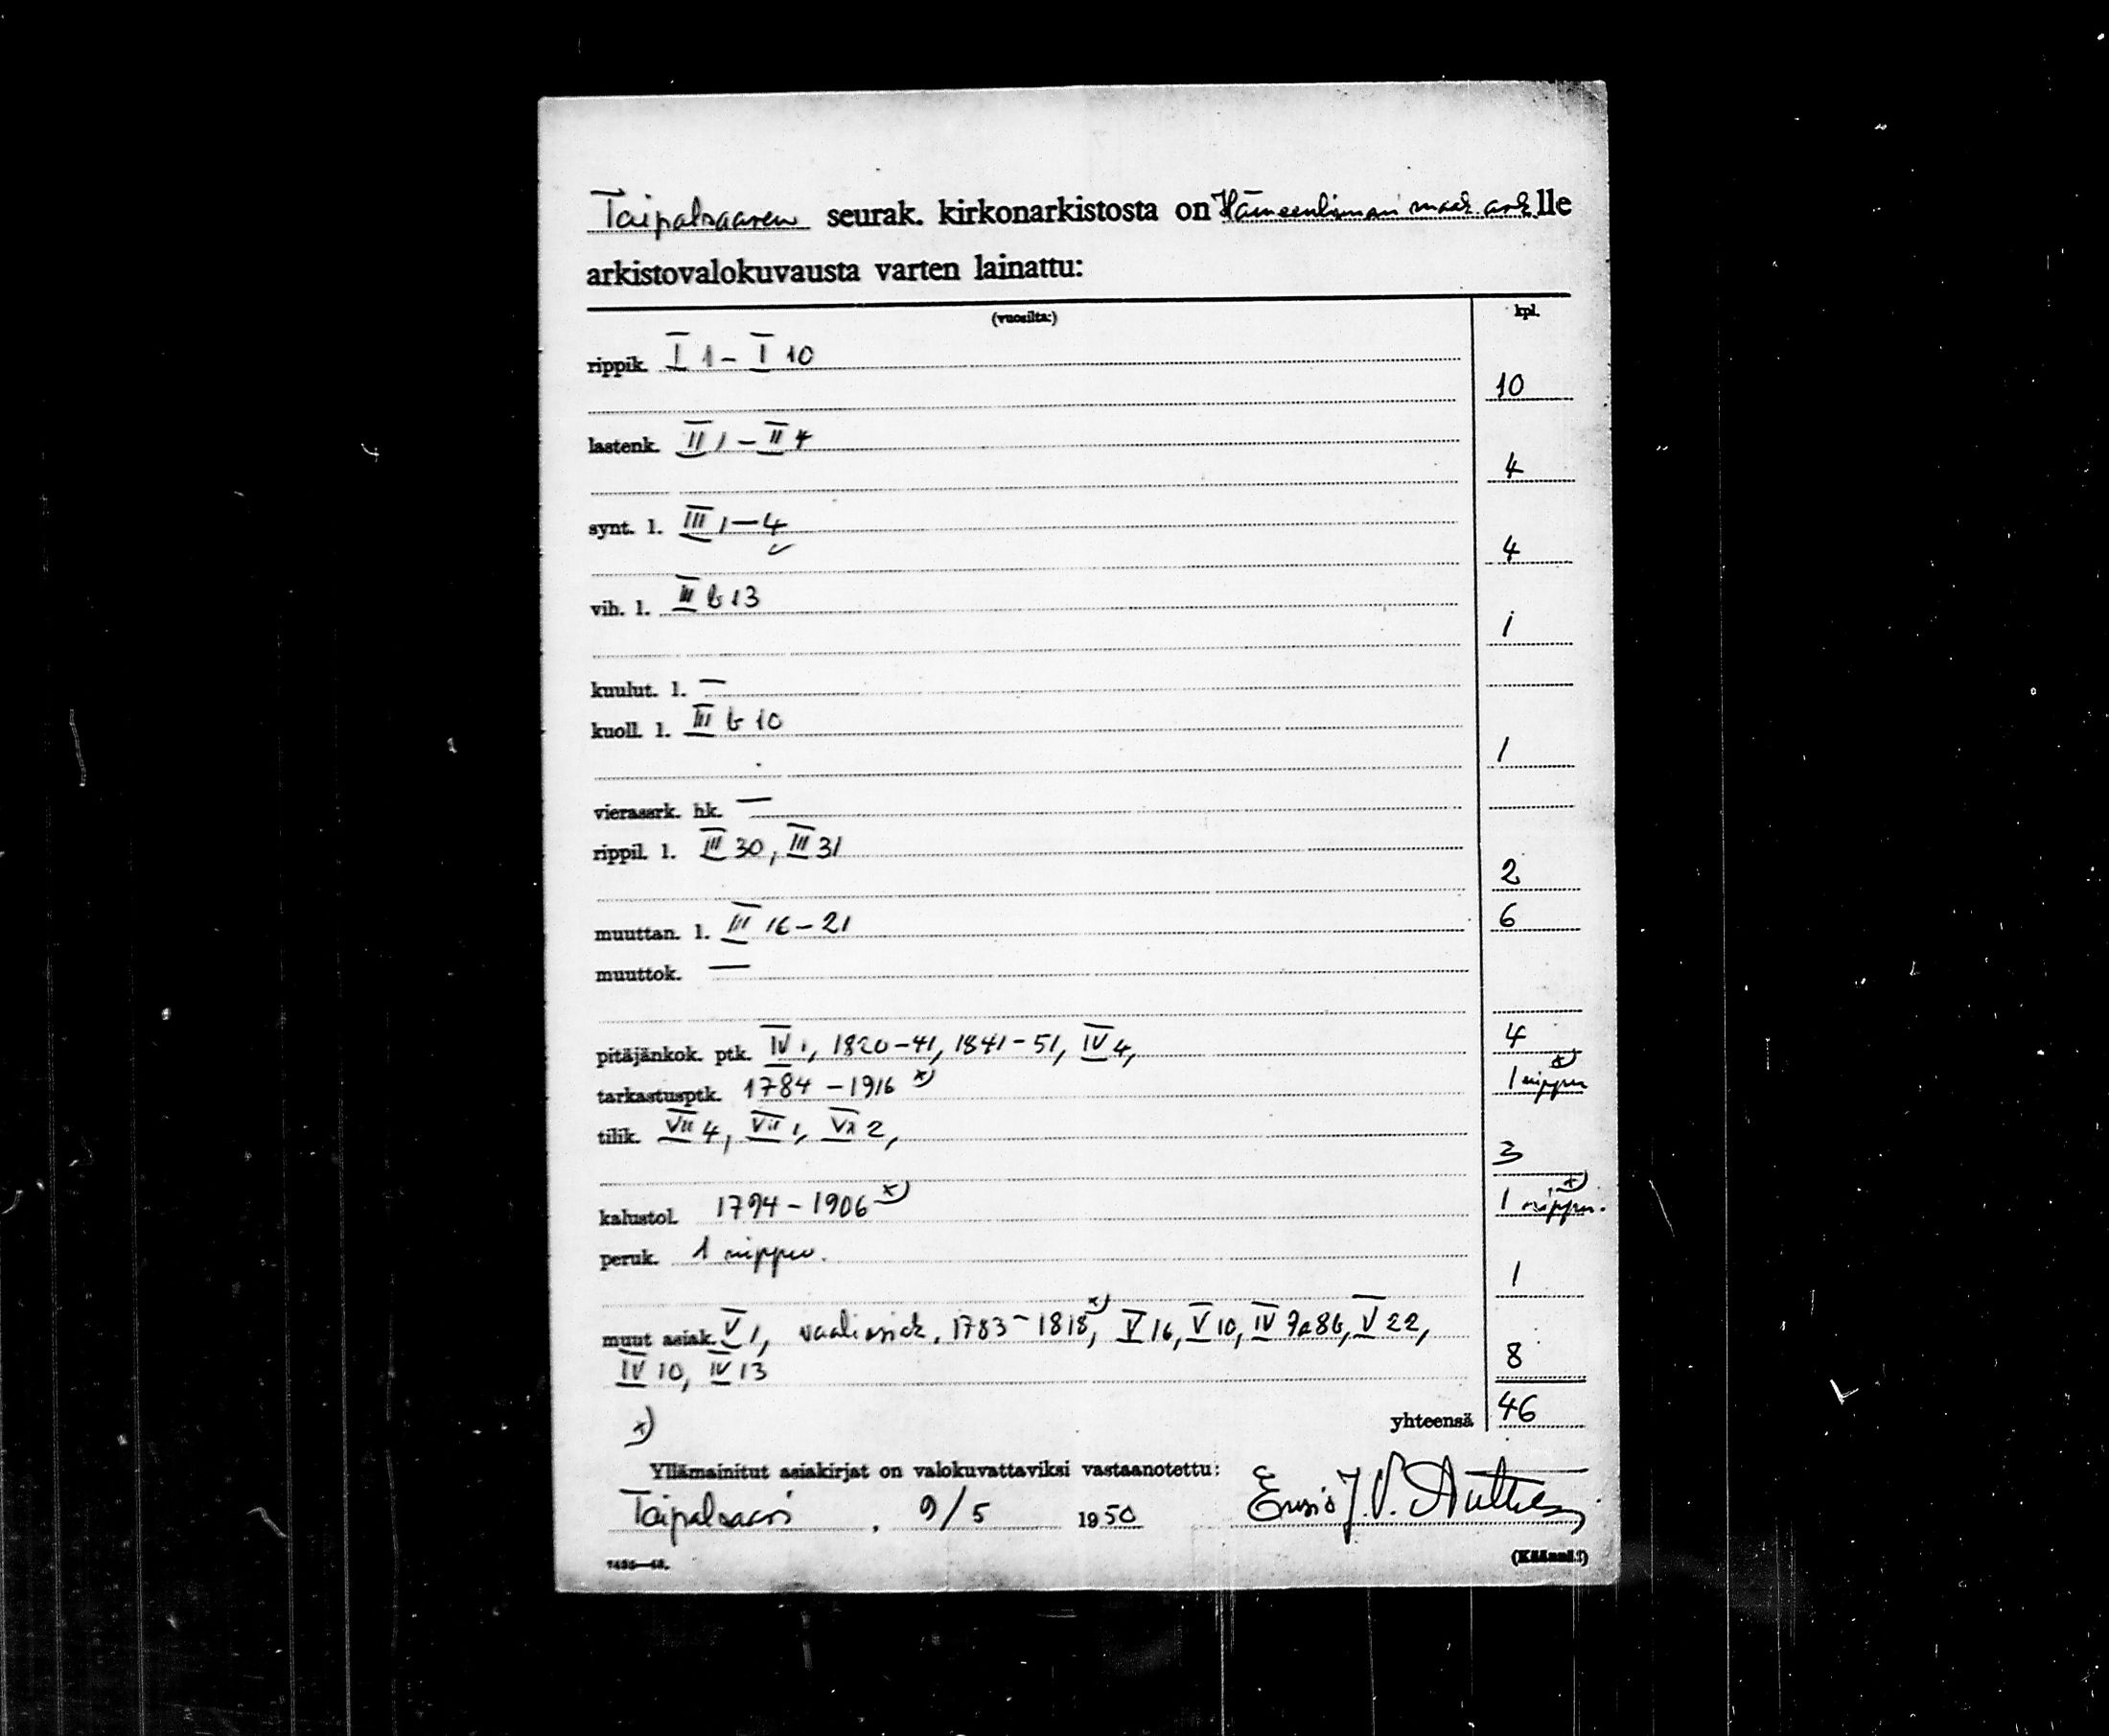 Taipalsaaren seurak. kirkonarkistosta on Hämeenlinnan maak. ark. lle
arkistovalokuvausta varten lainattu:
(vuosilta:) kpl.
rippik. I 1 – I 10
10
lastenk. II 1 – II 4
4
synt. l. III 1 – 4
4
vih. l. III b 13
1
kuulut. l. —
kuoll. l. III b 10
1
vierassrk. hk. —
rippil. l. III 30, III 31
2
muuttan. l. III 16 – 21 6
muuttok. —
pitäjänkok. ptk. IV 1, 1820–41, 1841–51, IV 4, 4
tarkastusptk. 1784 – 1916 x) 1 nippu x)
tilik. VII 4, VII 1, 2,
3
kalustol. 1794 – 1906 x) 1 nippu. x)
peruk. 1 nippu.
1
muut asiak. V 1, vaaliasiak. 1783 – 1818 x), V 16, V 10, IV 8b, V 22,
IV 10, IV 13 8
x) yhteensä 46
Yllämainitut asiakirjat on valokuvattaviksi vastaanotettu:
Taipalsaari, 9/5 1950 Ensio J. V.
(Käännä!)